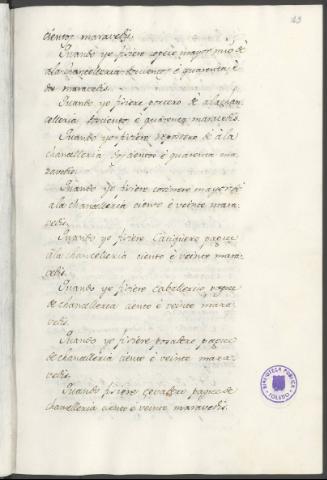 43
cientos maravedis.
Quando yo fiziere copero mayor mio dé
ála chancelleria docientos é quarenta é
dos maravedis.
Quando yo fiziere portero dé á la chan-
celleria docientos é quarenta maravedis.
Quando yo fiziére repostero dé á la
chancelleria docientos é quarenta ma-
ravedis.
Quando yo fiziere cocinero mayor dé
á la chancelleria ciento é veinte mara-
vedis.
Quando yo fiziére Zatiquero pague
á la chancelleria ciento é veinte mara-
vedis.
Quando yo fiziére caballerizo pague
de chancelleria ciento é veinte mara-
vedis.
Quando yo fiziére posadero pague
de chancelleria ciento é veinte mara-
vedis.
Quando fiziere cevadero pague de
chancelleria ciento é veinte maravedis.
BIBLIOTECA PUBLICA
TOLEDO